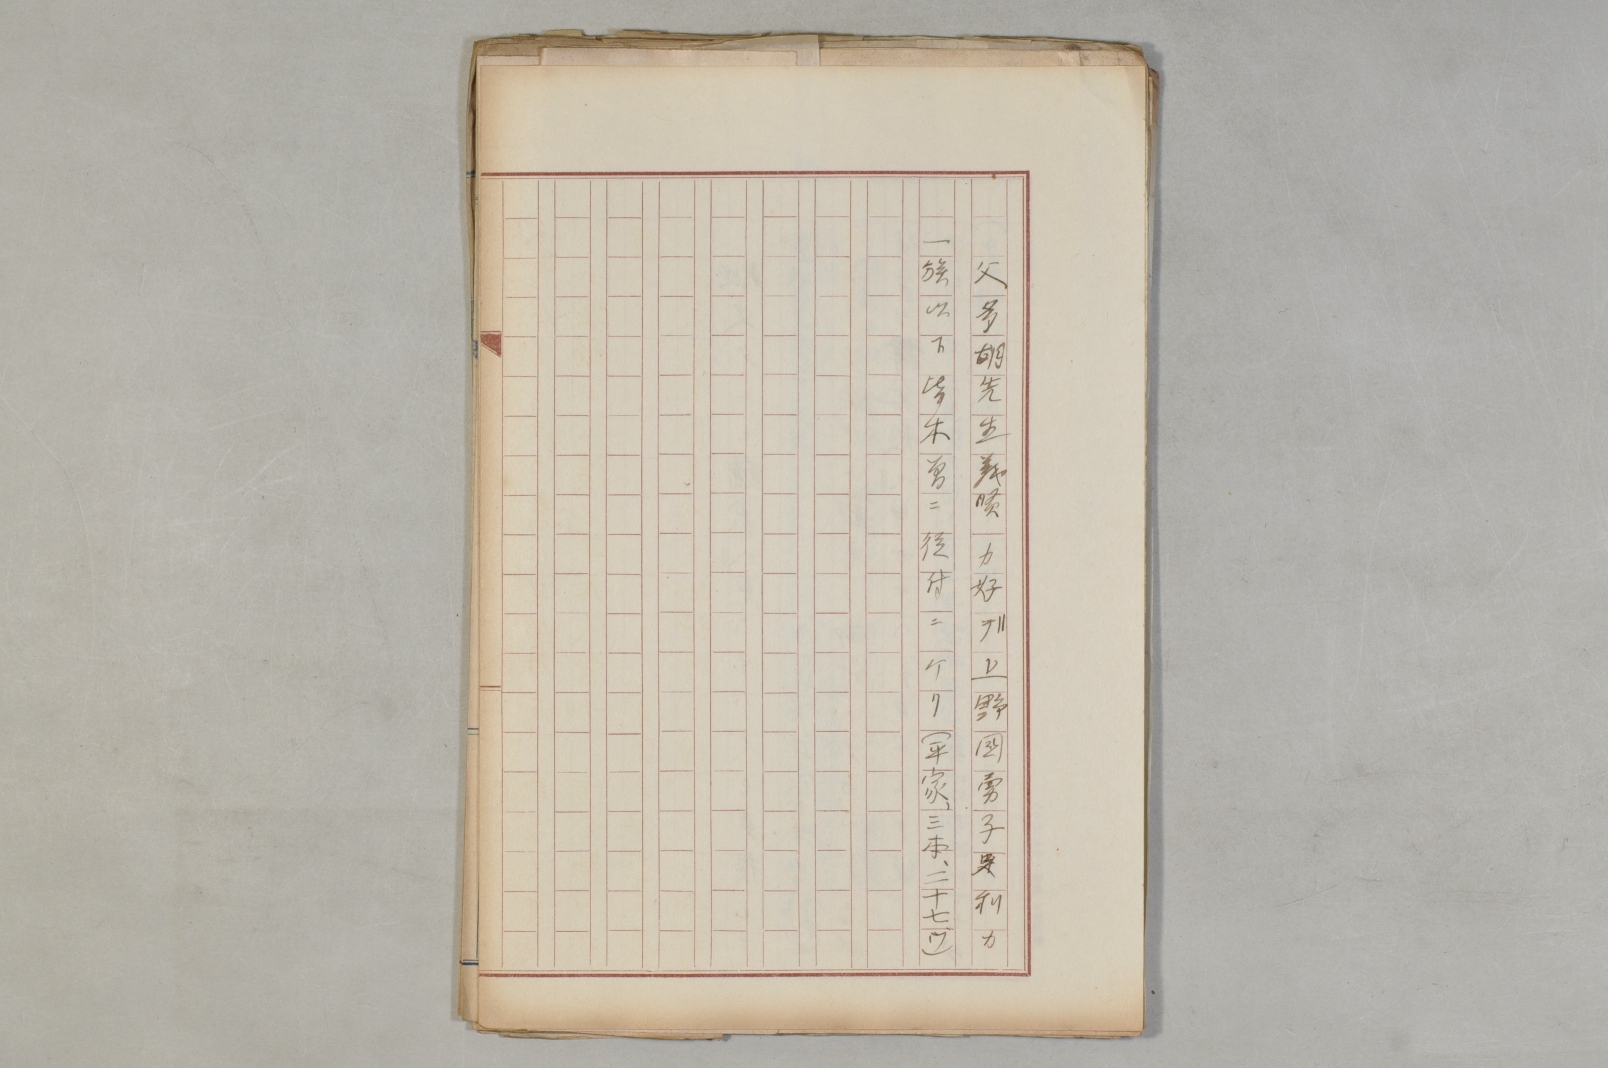 父多胡先生義賢カ好 上野国勇子足利カ
一族以下皆木曽ニ従付ニケリ(平家、三本、二十七ウ)